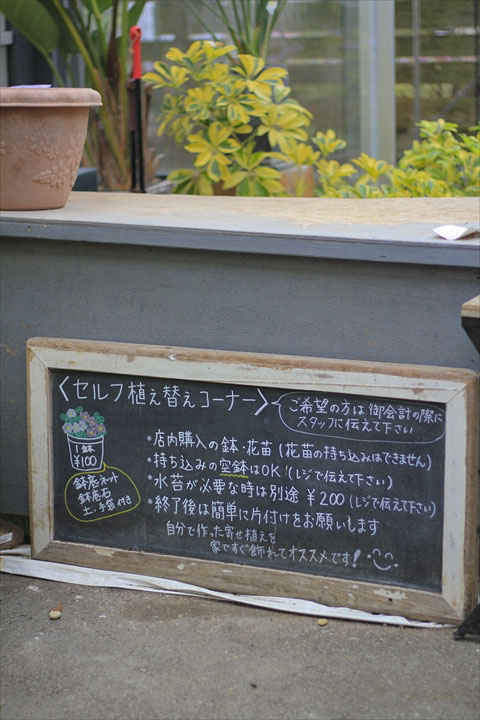 〈セルフ植え替えコーナー〉
ご希望の方は御会計の際に
スタッフに伝えて下さい
1鉢
¥100
鉢底ネット
鉢底石
土・手袋付き
・店内購入の鉢・花苗(花苗の持ち込みはできません)
・持ち込みの空鉢はOK!(レジで伝えて下さい)
・水苔が必要な時は別途¥200(レジで伝えて下さい)
・終了後は簡単に片付けをお願いします
自分で作った寄せ植えを
家ですぐ飾れてオススメです!